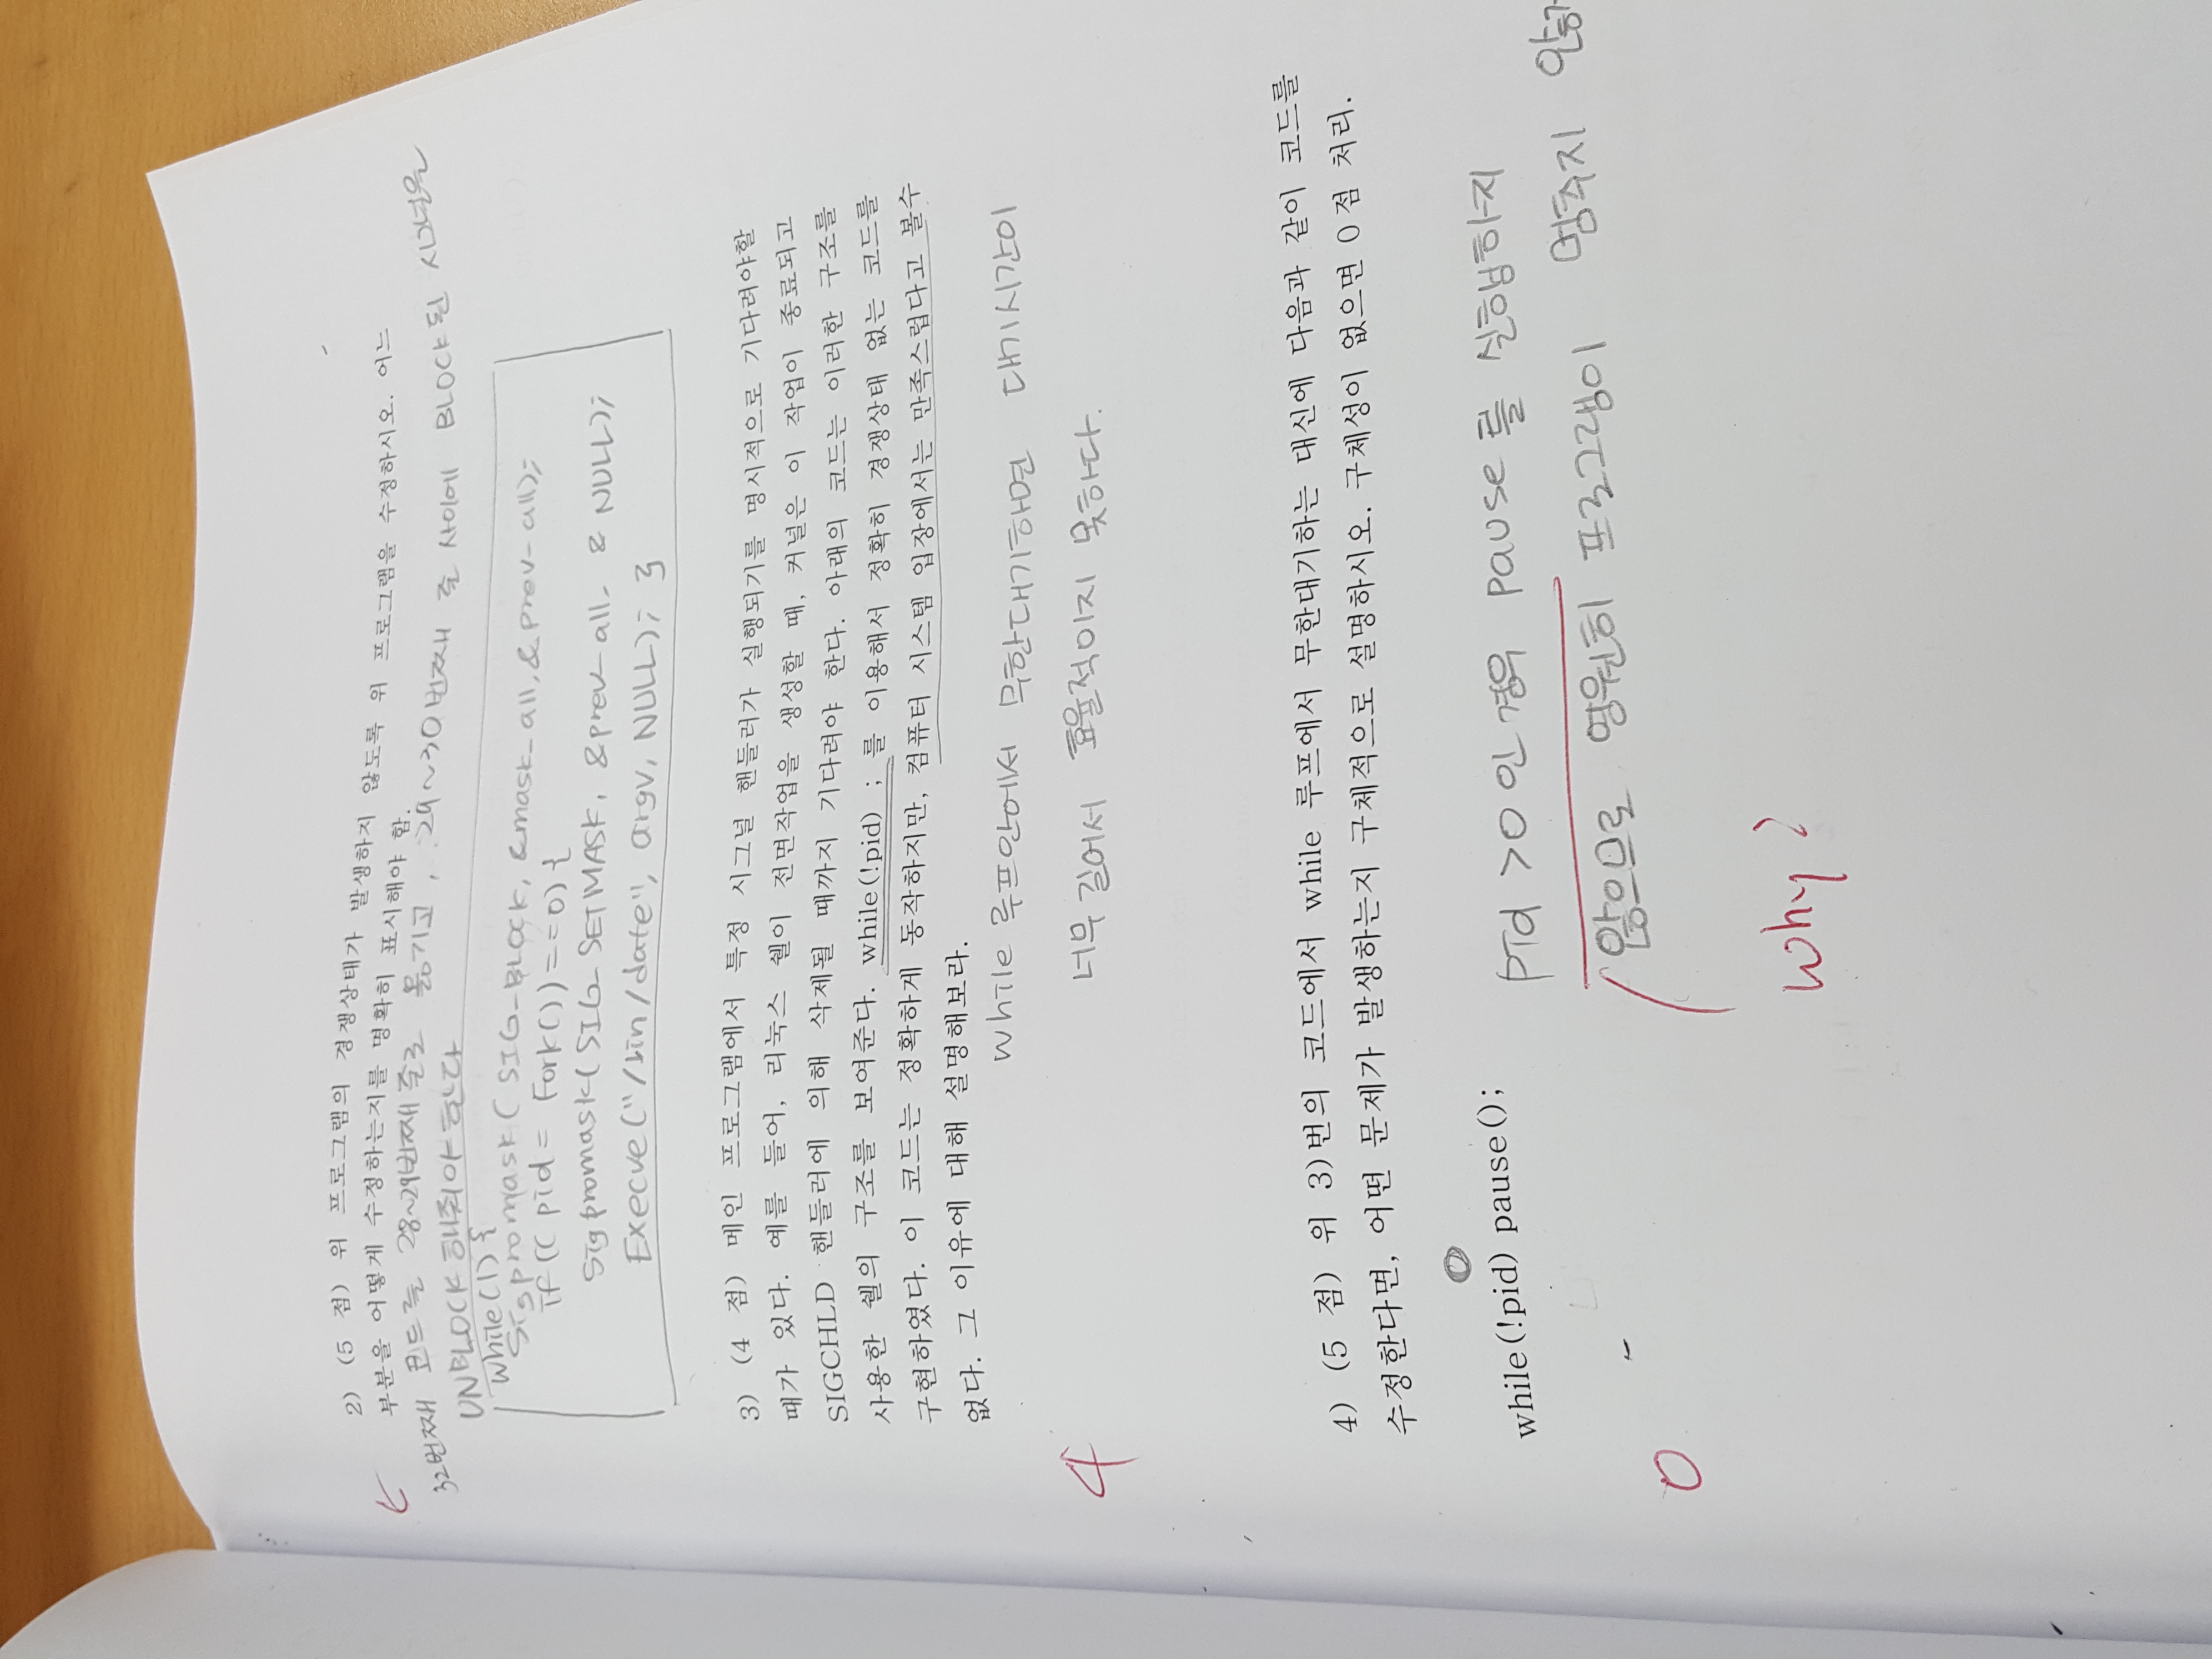 2) (5 점) 위 프로그램의 경쟁상태가 발생하지 않도록 위 프로그램을 수정하시오. 어느
부분을 어떻게 수정하는지를 명확히 표시해야 함.
32번째 코드를 28~29번째 줄로 옮기고, 29~30번째 줄 사이에 BLOCK된 시그널을
UNBLOCK 해줘야 한다
while(1) {
Sigpromask( SIG_BLOCK, &mask_all, & prev_all);
if (( pid = Fork()) == 0) {
Sigpromask(SIG_SETMASK, &prev_all, & NULL);
Execve("/bin/date", argv, NULL); }
3) (4 점) 메인 프로그램에서 특정 시그널 핸들러가 실행되기를 명시적으로 기다려야할
때가 있다. 예를 들어, 리눅스 쉘이 전면작업을 생성할 때, 커널은 이 작업이 종료되고
SIGCHLD 핸들러에 의해 삭제될 때까지 기다려야 한다. 아래의 코드는 이러한 구조를
사용한 쉘의 구조를 보여준다. while(!pid) ; 를 이용해서 정확히 경쟁상태 없는 코드를
구현하였다. 이 코드는 정확하게 동작하지만, 컴퓨터 시스템 입장에서는 만족스럽다고 볼수
없다. 그 이유에 대해 설명해보라.
while 루프안에서 무한대기하면 대기시간이
너무 길어서 효율적이지 못하다.
4
4) (5 점) 위 3)번의 코드에서 while 루프에서 무한대기하는 대신에 다음과 같이 코드를
수정한다면, 어떤 문제가 발생하는지 구체적으로 설명하시오. 구체성이 없으면 0점 처리.
0
while(!pid) pause();
pid >0 인 경우 pause를 실행하지
않으므로 영원히 프로그램이 멈추지 않
0
Why?